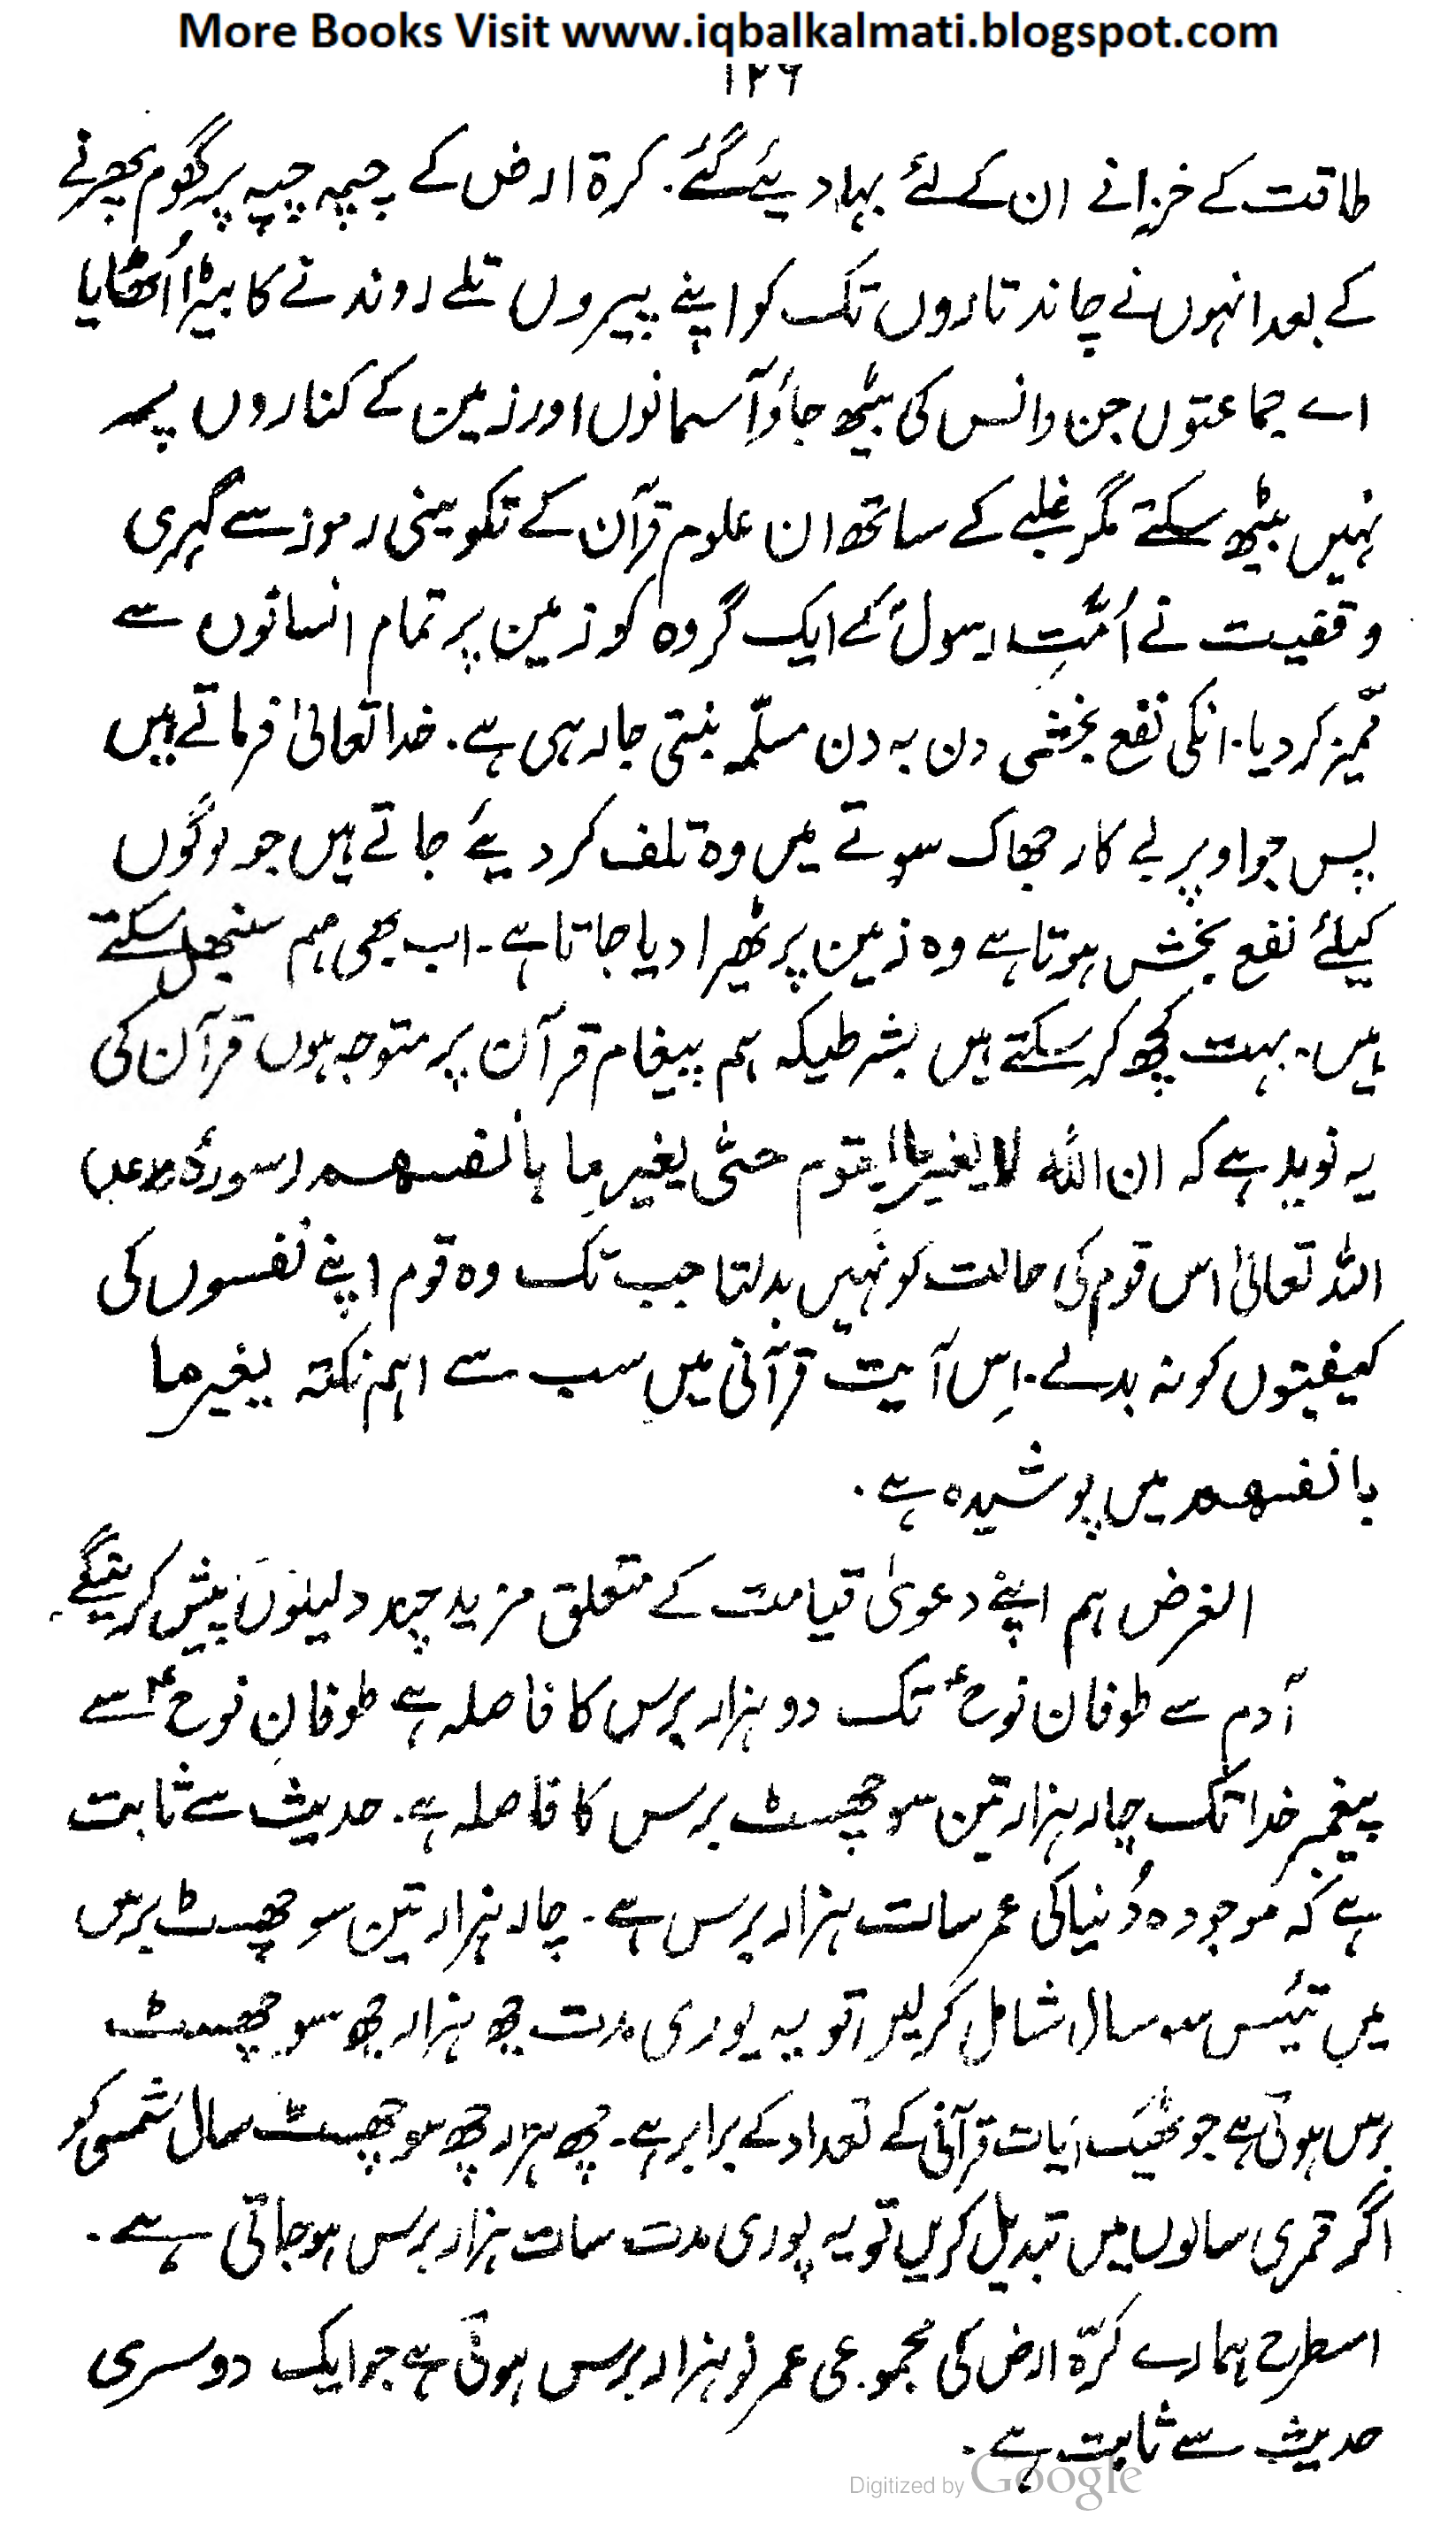 More Books Visit www.iqbalkalmati.blogspot.com
۱۲۶
طاقت کے خزانے ان کے لئے بہا دیئے گئے۔ کرۃ ارض کے چپہ چپہ پر گھوم پھرنے
کے بعد انہوں نے چاند تاروں تک کو اپنے پیروں تلے روندنے کا بیڑا اُٹھایا
اے جماعتوں جن وانس کی بیٹھ جاؤ آسمانوں اور زمین کے کناروں پر
نہیں بیٹھ سکتے مگر غلبے کے ساتھ ان علوم قرآن کے تکوینی رموز سے گہری
وقفیت نے اُمّتِ رسولؐ کے ایک گروہ کو زمین پر تمام انسانوں سے
ممیّز کر دیا۔ انکی نفع بخشی دن بہ دن مسلّمہ بنتی جا رہی ہے۔ خدا تعالیٰ فرماتے ہیں
پس جو اوپر بے کار جھاگ سوتے ہیں وہ تلف کر دیئے جاتے ہیں جو لوگوں
کیلئے نفع بخش ہوتا ہے وہ زمین پر ٹھیرا دیا جاتا ہے۔ اب بھی ہم سنبھل سکتے
ہیں۔ بہت کچھ کر سکتے ہیں بشرطیکہ ہم پیغام قرآن پر متوجہ ہوں قرآن کی
یہ نوید ہے کہ ان اللہ لا یغیر ما بقوم حتّٰی یغیر ما بانفسهم (سورۂ رعد)
اللہ تعالیٰ اس قوم کی حالت کو نہیں بدلتا جب تک وہ قوم اپنے نفسوں کی
کیفیتوں کو نہ بدلے۔ اِس آیت قرآنی میں سب سے اہم نکتہ یغیر ما
بانفسهم میں پوشیدہ ہے۔
الغرض ہم اپنے دعویٰ قیامت کے متعلق مزید چند دلیلوں پیش کرینگے۔
آدم سے طوفان نوحؑ تک دو ہزار برس کا فاصلہ ہے طوفانِ نوحؑ سے
پیغمبرِ خدا تک چار ہزار تین سو چھسٹ برس کا فاصلہ ہے۔ حدیث سے ثابت
ہے کہ موجودہ دُنیا کی عمر سات ہزار برس ہے۔ چار ہزار تین سو چھسٹ برس
میں تیئس سو سال شامل کر لیں تو یہ پوری مدت چھ ہزار چھ سو چھسٹ
برس ہوتی ہے جو ٹھیک آیات قرآنی کے تعداد کے برابر ہے۔ چھ ہزار چھ سو چھسٹ سال شمسی کو
اگر قمری سالوں میں تبدیل کریں تو یہ پوری مدت سات ہزار برس ہو جاتی ہے۔
اسطرح ہمارے کرّہ ارض کی مجموعی عمر نو ہزار برس ہوتی ہے جو ایک دوسری
حدیث سے ثابت ہے۔
Digitized by Google